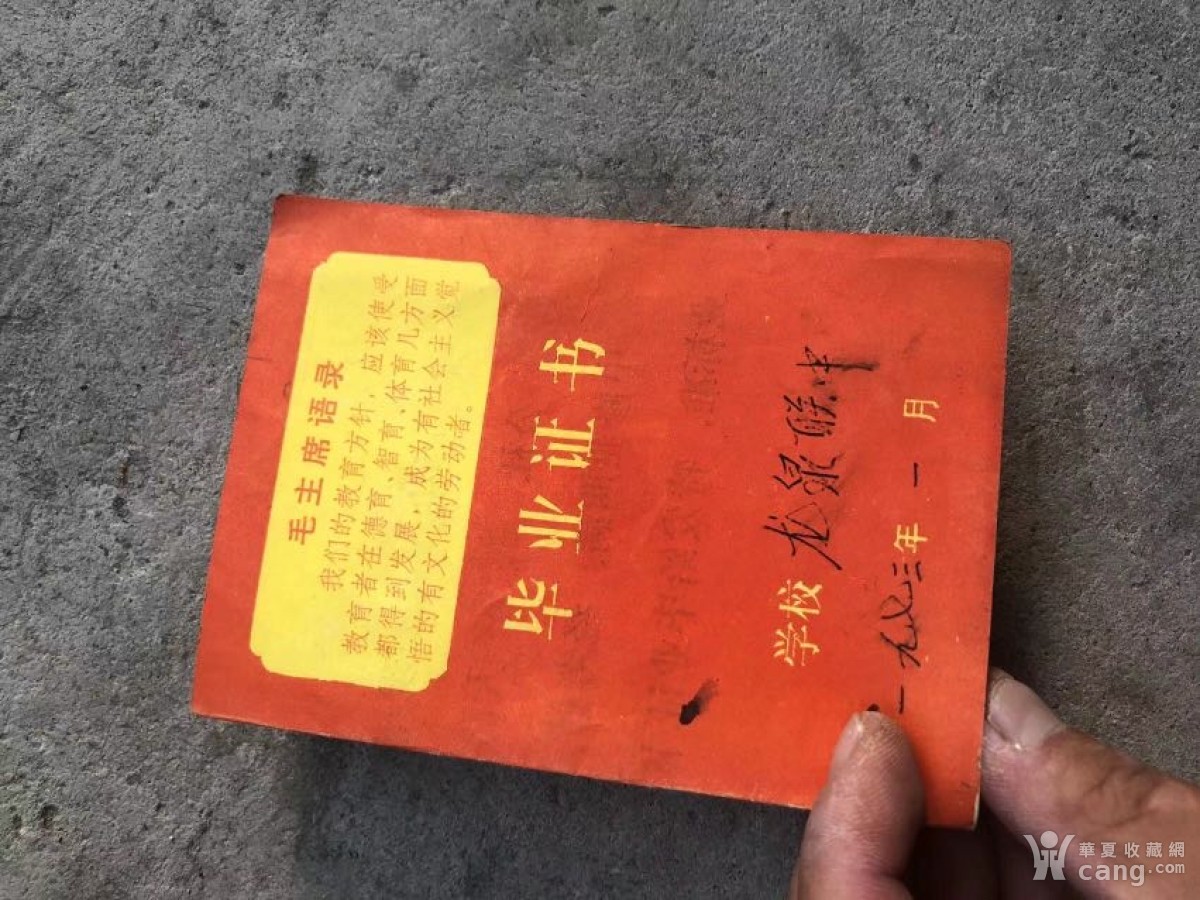 毛主席语录
我们的教育方针，应该使受
教育者在德育、智育、体育几方面
都得到发展，成为有社会主义觉
悟的有文化的劳动者。
毕业证书
学校 龙泉联中
一九七三年 一 月
華夏收藏網
cang.com